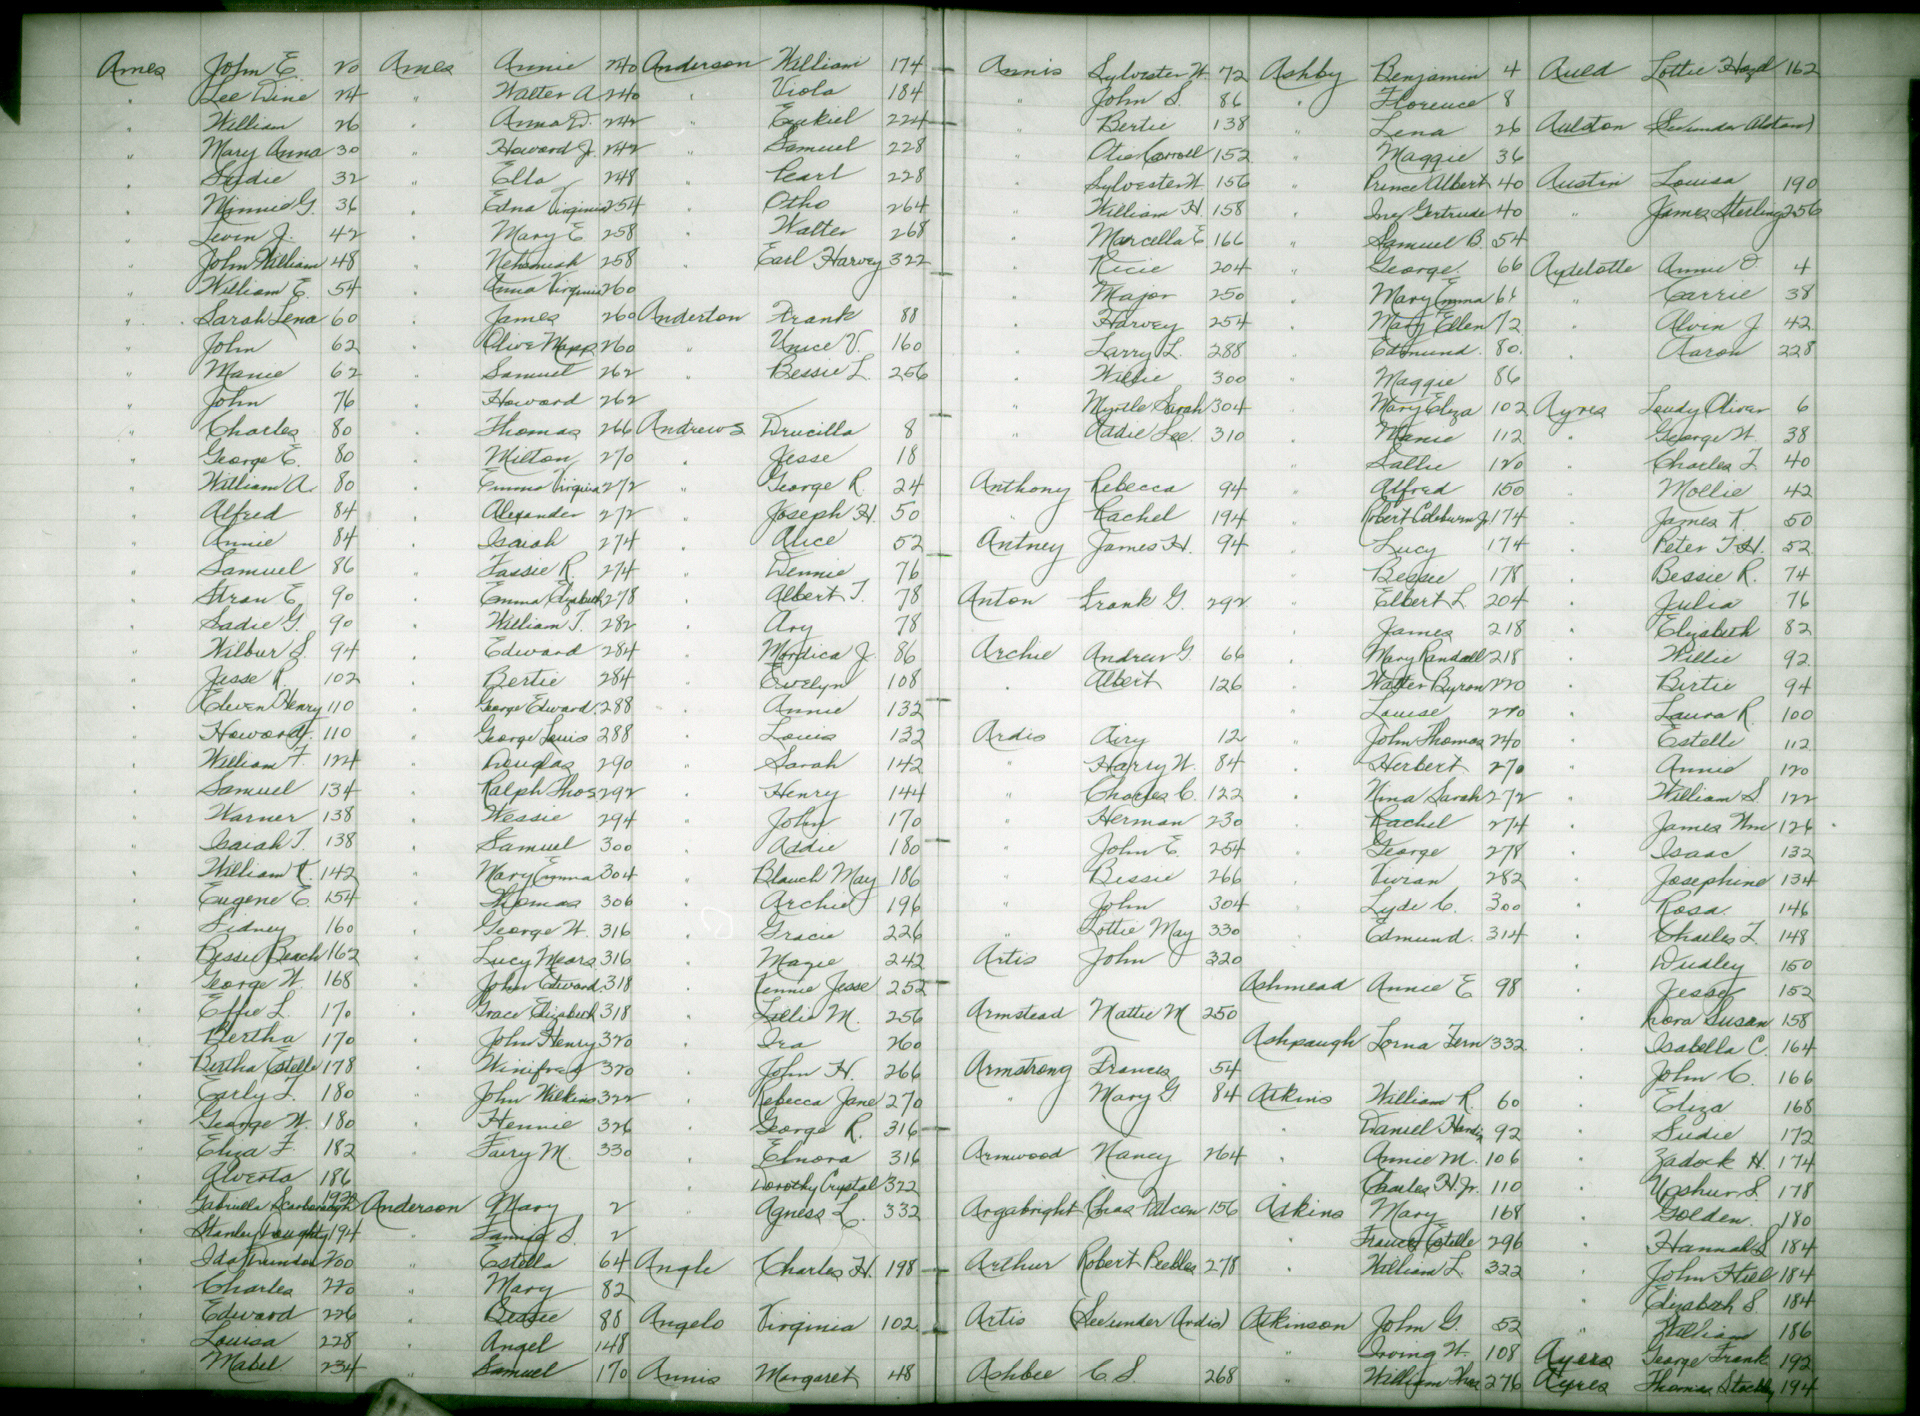 Ames John E. 20
" Lee Dine 24
" William 26
" Mary Anna 30
" Sadie 32
" Minnie G. 36
" Levin J. 42
" John William 48
" William E. 54
" Sarah Lena 60
" John 62
" Mamie 62
" John 76
" Charles 80
" George E. 80
" William A. 80
" Alfred 84
" Annie 84
" Samuel 86
" Stran E. 90
" Sadie G. 90
" Wilbur S. 94
" Jesse R. 102
" Henry 110
" Howard 110
" William F. 124
" Samuel 134
" Warner 138
" Isaiah T. 138
" William K. 142
" Eugene E. 154
" Sidney 160
" Bessie Beach 162
" George W. 168
" Effie L. 170
" Bertha 170
" Bertha Estelle 178
" Early T. 180
" George W. 180
" Eliza F. 182
" Alverta 186
" Gabriella Scarborough 192
" Stanley Doughty 194
" Ida 200
" Charles 220
" Edward 226
" Louisa 228
" Mabel 234
Ames Annie 240
" Walter A. 240
" Anna D. 242
" Howard J. 242
" Ella 248
" Edna Virginia 254
" Mary E. 258
" Nehemiah 258
" Virginia 260
" James 260
" Olive Mapp 260
" Samuel 262
" Howard 262
" Thomas 266
" Milton 270
" Emma Virginia 272
" Alexander 272
" Isaiah 274
" Tassie R. 274
" Emma Elizabeth 278
" William T. 282
" Edward 284
" Bertie 284
" George Edward 288
" George Louis 288
" Douglas 290
" Ralph Thos 292
" Wessie 294
" Samuel 300
" Mary Emma 304
" Thomas 306
" George W. 316
" Lucy Mears 316
" John Edward 318
" Grace Elizabeth 318
" John Henry 320
" Winifred 320
" John Wilkins 322
" Hennie 326
" Fairy M. 330
Anderson Mary 2
" Fannie S. 2
" Estella 64
" Mary 82
" Bessie 88
" Angel 148
" Samuel 170
Anderson William 174
" Viola 184
" Ezekiel 224
" Samuel 228
" Pearl 228
" Otho 264
" Walter 268
" Earl Harvey 322
Anderton Frank 88
" Unice V. 160
" Bessie L. 256
Andrews Drucilla 8
" Jesse 18
" George R. 24
" Joseph H. 50
" Alice 52
" Dennie 76
" Albert T. 78
" Ary 78
" Mordica J. 86
" Evelyn 108
" Annie 132
" Louis 132
" Sarah 142
" Henry 144
" John 170
" Addie 180
" Blanch May 186
" Archie 196
" Gracie 226
" Magie 242
" Jesse 252
" Lillie M. 256
" Ira 260
" John H. 266
" Rebecca Jane 270
" George R. 316
" Elnora 316
" Dorothy Crystal 322
" Agness L. 332
Angle Charles H. 198
Angelo Virginia 102
Annis Margaret 48
Annis Sylvester W. 72
" John S. 86
" Bertie 138
" Otis Carroll 152
" Sylvester W. 156
" William H. 158
" Marcella E. 166
" Ricie 204
" Major 250
" Harvey 254
" Larry L. 288
" Willie 300
" Myrtle Sarah 304
" Addie Lee 310
Anthony Rebecca 94
" Rachel 194
Antney James H. 94
Anton Frank G. 292
Archie Andrew G. 66
" Albert 126
Ardis Airy 12
" Harry W. 84
" Charles C. 122
" Herman 230
" John E. 254
" Bessie 266
" John 304
" Lottie May 330
Artis John 320
Armstead Mattie M 250
Armstrong Frances 54
" Mary G 84
Armwood Nancy 264
Argabright Chas 156
Arthur Robert Peebles 278
Artis (See under Ardis)
Ashbee C. S. 268
Ashby Benjamin 4
" Florence 8
" Lena 26
" Maggie 36
" Prince Albert 40
" Gertrude 40
" Samuel B. 54
" George 66
" Mary Emma 66
" Mary Ellen 72
" Edmund 80
" Maggie 86
" Mary Eliza 102
" Mamie 112
" Sallie 120
" Alfred 150
" Robert Coleburn Jr. 174
" Lucy 174
" Bessie 178
" Elbert L. 204
" James 218
" Mary Randall 218
" Walter Byron 220
" Louise 270
" John Thomas 240
" Herbert 270
" Nina Sarah 272
" Rachel 274
" George 278
" 282
" Lyde C. 300
" Edmund 314
Ashmead Annie E 98
Ashpaugh Lorna Fern 332
Atkins William R. 60
" Daniel 92
" Annie M. 106
" Charles H. Jr. 110
Askins Mary 168
" Estelle 296
" William L. 322
Atkinson John G. 52
" Irving W. 108
" William Thos 276
Auld Lottie 162
Aulston (See under Alston)
Austin Louisa 190
" James Sterling 256
Aydelotte Annie O. 4
" Carrie 38
" Alvin J 42
" Aaron 228
Ayres Oliver 6
" George W. 38
" Charles T. 40
" Mollie 42
" James K. 50
" Peter T. H. 52
" Bessie R. 74
" Julia 76
" Elizabeth 82
" Willie 92
" Birtie 94
" Laura R. 100
" Estelle 112
" Annie 120
" William S. 122
" James Wm 126
" Isaac 132
" Josephine 134
" Rosa 146
" Charles T. 148
" Dudley 150
" Jesse 152
" Susan 158
" Isabella C. 164
" John C. 166
" Eliza 168
" Sudie 172
" Zadock H. 174
" Upshur S. 178
" Golden 180
" Hannah S. 184
" John 184
" Elizabeth S. 184
" William 186
Ayers George Frank 192
Ayres Thomas 194